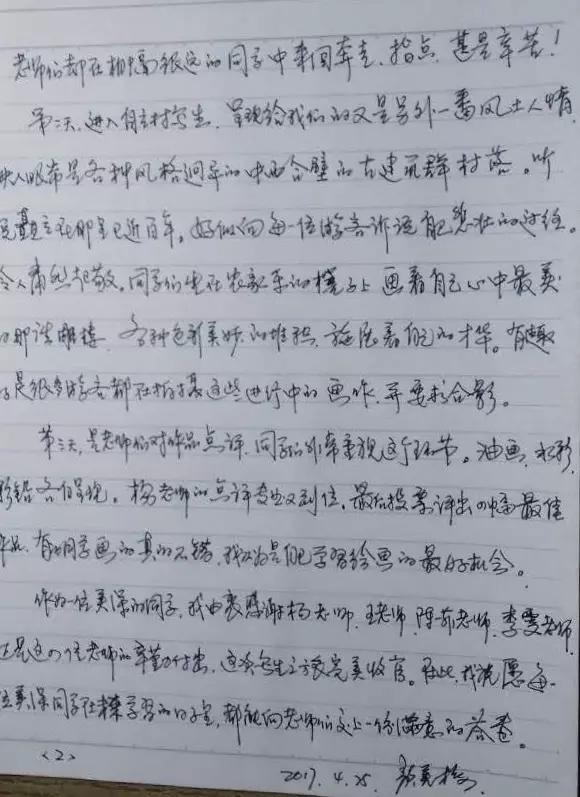 老师们却在相隔很远的同学中来回奔走、指点,甚是辛苦!
第二天,进入自力村写生,呈现给我们的又是另外一番风土人情,
映入眼帘是各种风格迥异的中西合璧的古建筑群村落。听
说矗立在那里已近百年,好似向每一位游客诉说自己悲壮的过往。
令人肃然起敬。同学们坐在农家乐的楼子上画着自己心中最美
的那谈雕楼,各种色彩美妙的堆积,施展着自己的才华。有趣
的是很多游客都在拍摄这些进行中的画作,并要求合影。
第三天,是老师们对作品点评,同学们非常重视这个环节。油画、水彩、
彩铅各自呈现。杨老师的点评专业又到位,最后投票评出十幅最佳
作品,有的同学画的真的不错,我认为是自己学习绘画的最好机会。
作为一位美深的同学,我由衷感谢杨老师、王老师、陈茹老师、李雯老师
正是这四位老师的辛勤付出,这次写生之旅完美收官。在此,我祝愿每
位美深同学在未来学习的日子里,都能向老师们交上一份满意的答卷。
<2>
2017.4.25.